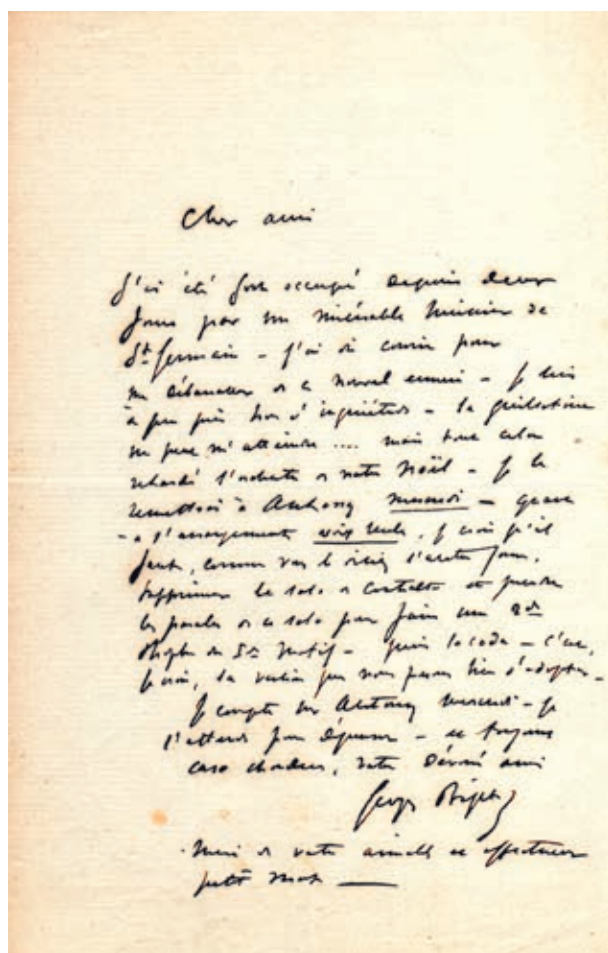 Cher ami
J'ai été fort occupé depuis deux
jours par un misérable huissier de
St Germain – j'ai dû courir pour
me débarrasser de ce nouvel ennui – je suis
à peu près hors d'inquiétude – la guillotine
ne peut m'atteindre .... mais tout cela a
retardé l'orchestre de notre Noël – je le
remettrai à Anthony mercredi – quant
– à l'arrangement voix seule, je crois qu'il
faut, comme vous le disiez l'autre jour,
supprimer le solo de contralto et prendre
les paroles de ce solo pour faire un 2d
couplet du 1er motif – puis la coda – c'est,
je crois, la version que nous venons d'adopter –
je compte sur Anthony mercredi – je
l'attends pour déjeuner –
votre dévoué ami
Georges Bizet
Merci de votre aimable et affectueux
petit mot –